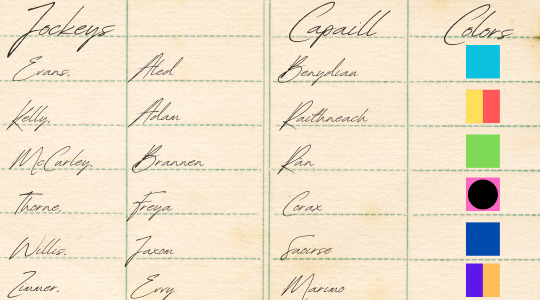 Jockeys Capaill Colors
Evans, Aled Benydian
Kelly, Adam Raithneach
McCarley, Brannen Rán
Thorne, Freya Corax
Willis, Jaxon Saoirse
Zimmer, Evvy Marimo